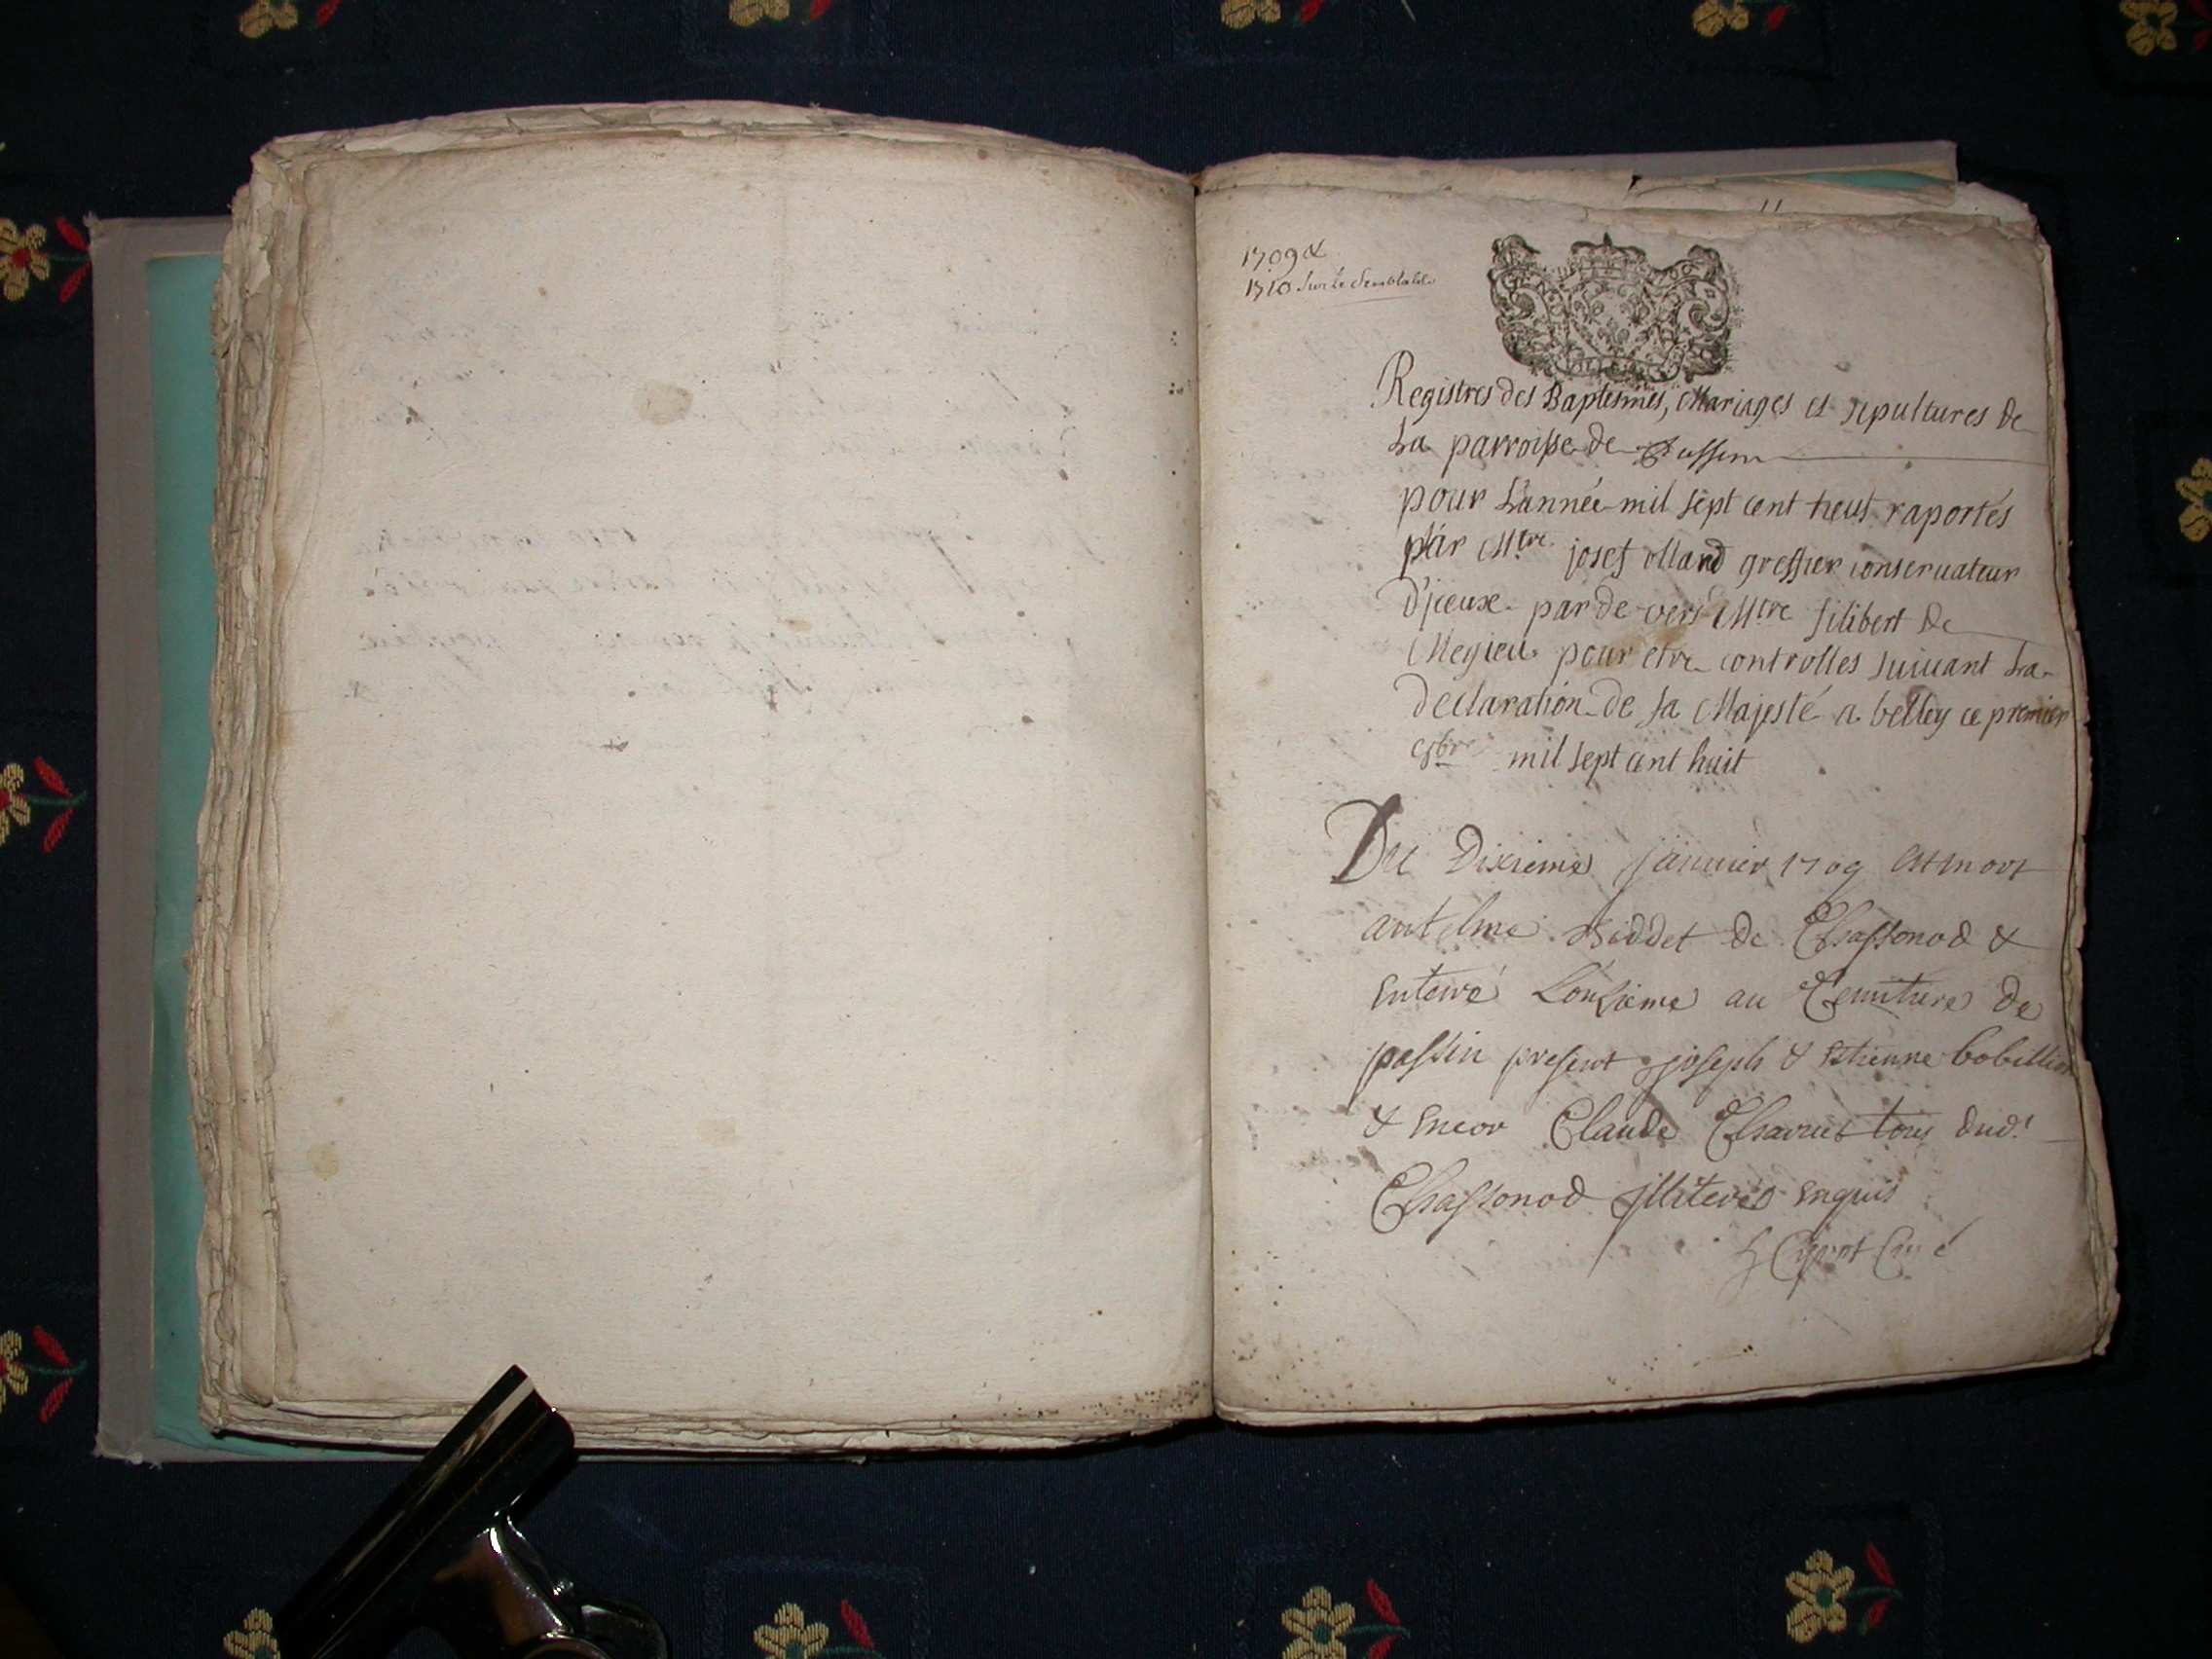 1709 &
1710 Sur le Semblable
Registres des Baptesmes, Mariages et sepultures de
La parroisse de
pour L'année mil sept cent neuf raportés
par Mtre josef olland greffier conservateur
d'iceux par de vers Mtre filibert de
Megieu pour etre controlles suivant La
declaration de sa Majesté a belley ce premier
mil sept cent huit
Du Dixieme janvier 1709 est mort
antelme Biddet de Chassonod &
Enterré L'onzieme au Cemitiere de
passin present joseph & Etienne bobillion
& Encor Claude Charvet tous dud.t
Chassonod illiteres Enquis
Curé